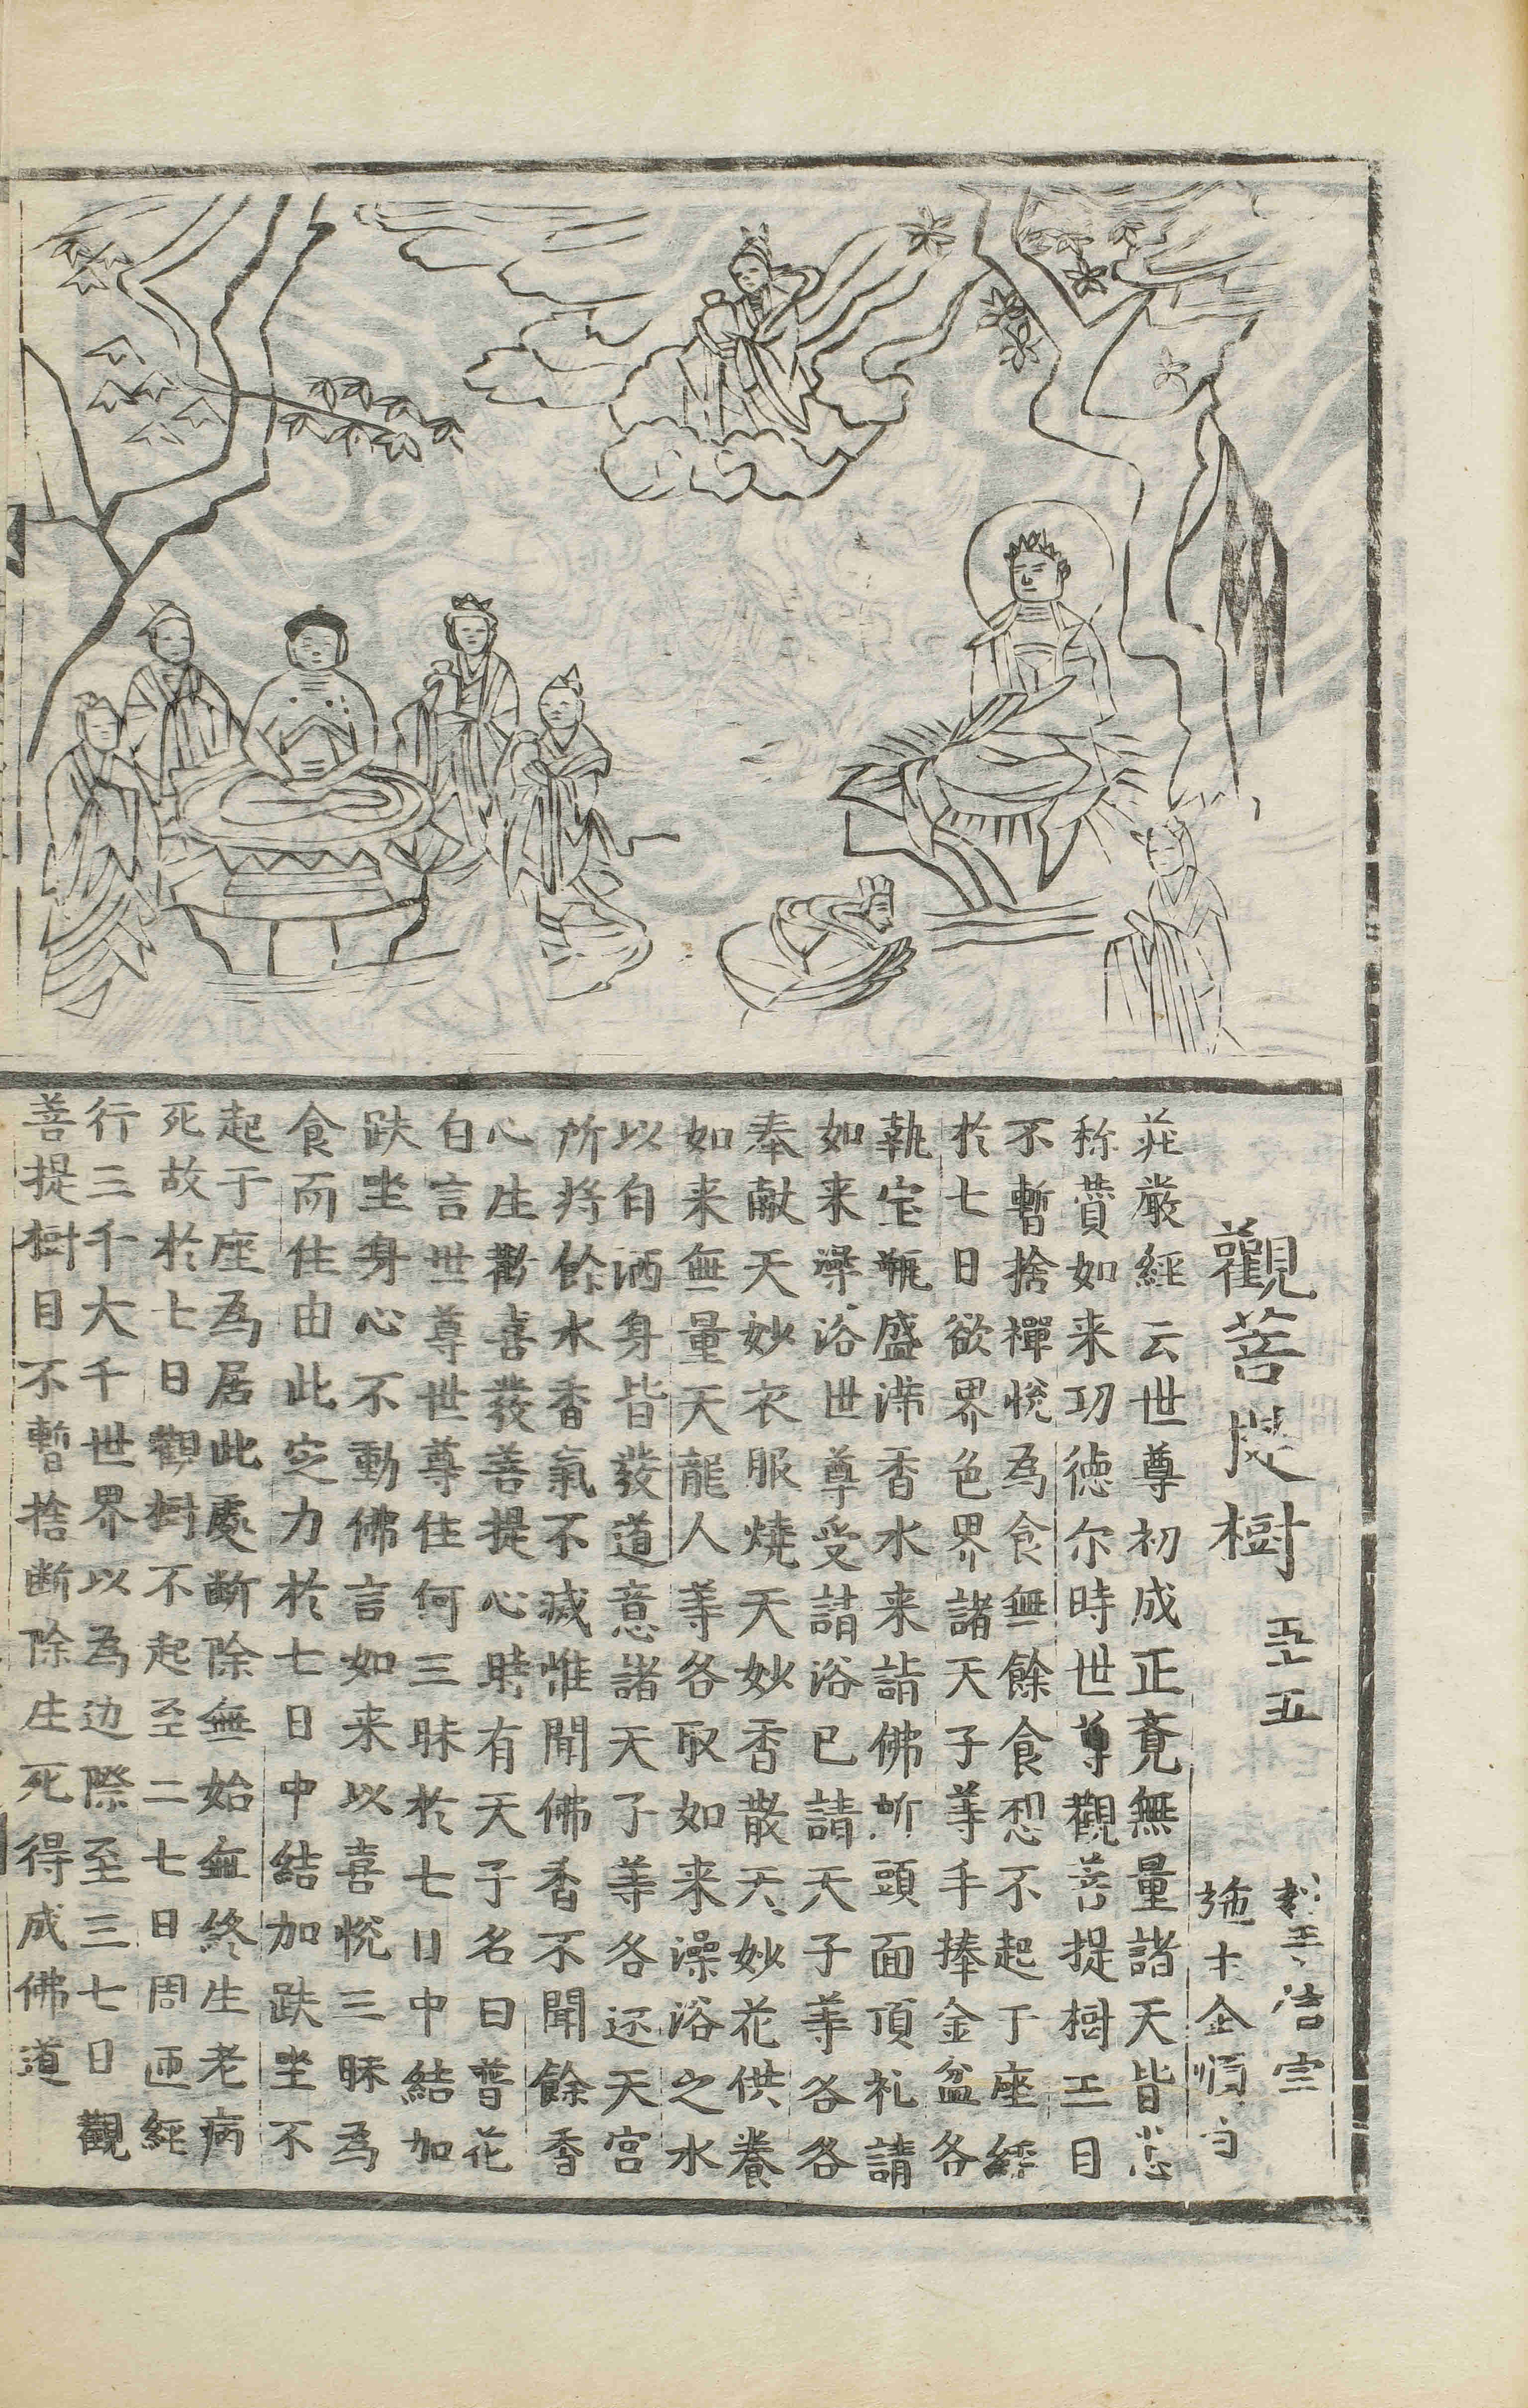 觀菩提樹 五十五
莊嚴經云世尊初成正竟無量諸天皆悉
称贊如来功徳尔時世尊觀菩提樹王目
不暫捨禪悦為食無餘食想不起于座經
於七日欲界色界諸天子等手捧金盆各
執宝瓶盛满香水来詣佛所頭面頂礼請
如来澡浴世尊受請浴已請天子等各各
奉献天妙衣服燒天妙香散天妙花供養
如来無量天龍人等各取如来澡浴之水
以自洒身皆發道意諸天子等各还天宫
所将餘水香氣不滅惟聞佛香不聞餘香
心生歡喜發善提心時有天子名曰普花
白言世尊世尊住何三昧於七日中結加
趺坐身心不動佛言如来以喜悦三昧為
食而住由此定力於七日中結加趺坐不
起于座為居此處断除無始無終生老病
死故於七日觀樹不起至二七日周匝經
行三千大千世界以為边際至三七日觀
菩提樹目不暫捨断除生死得成佛道